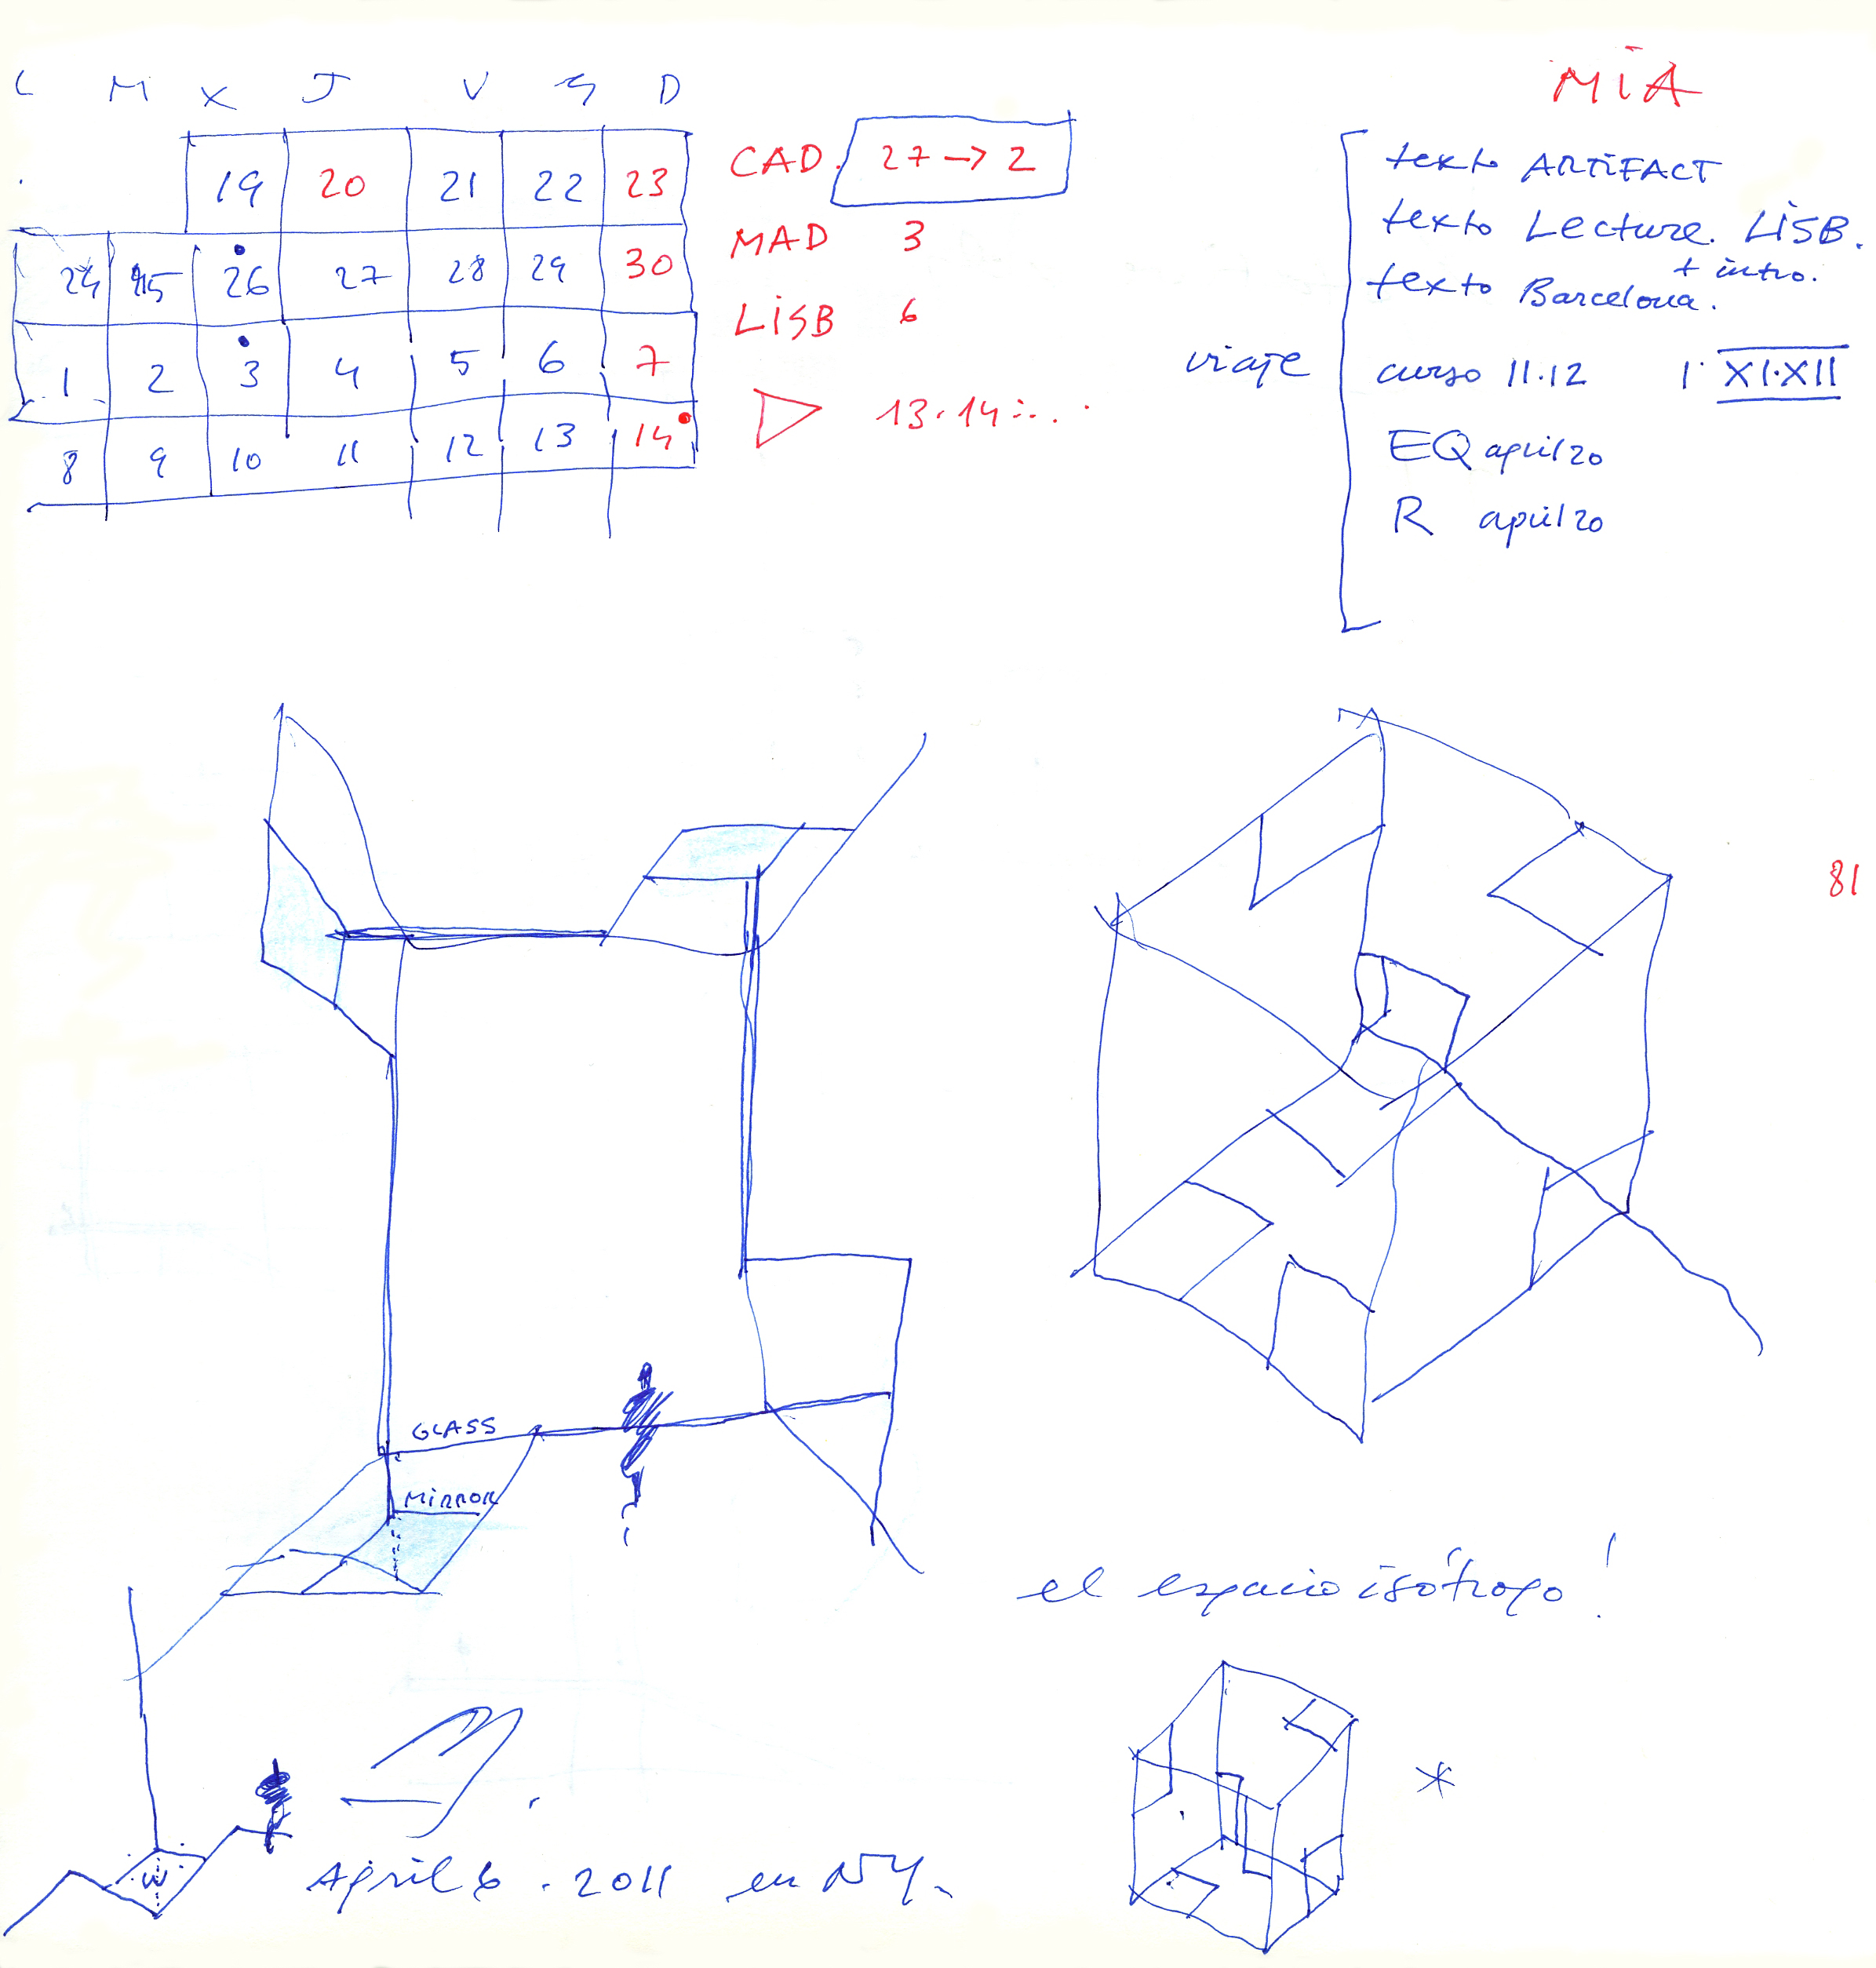 L M X J V S D
19 20 21 22 23
24 25 26 27 28 29 30
1 2 3 4 5 6 7
8 9 10 11 12 13 14
CAD. 27 → 2
MAD 3
LiSB 6
13.14
MiA
texto ARTiFACT
texto Lecture. LiSB.
+ intro.
texto Barcelona.
viaje
curso 11.12 1· XI·XII
EQ april 20
R april 20
81
GLASS
MiRROR
el espacio isótropo!
W
*
April 6 . 2011 en NY.